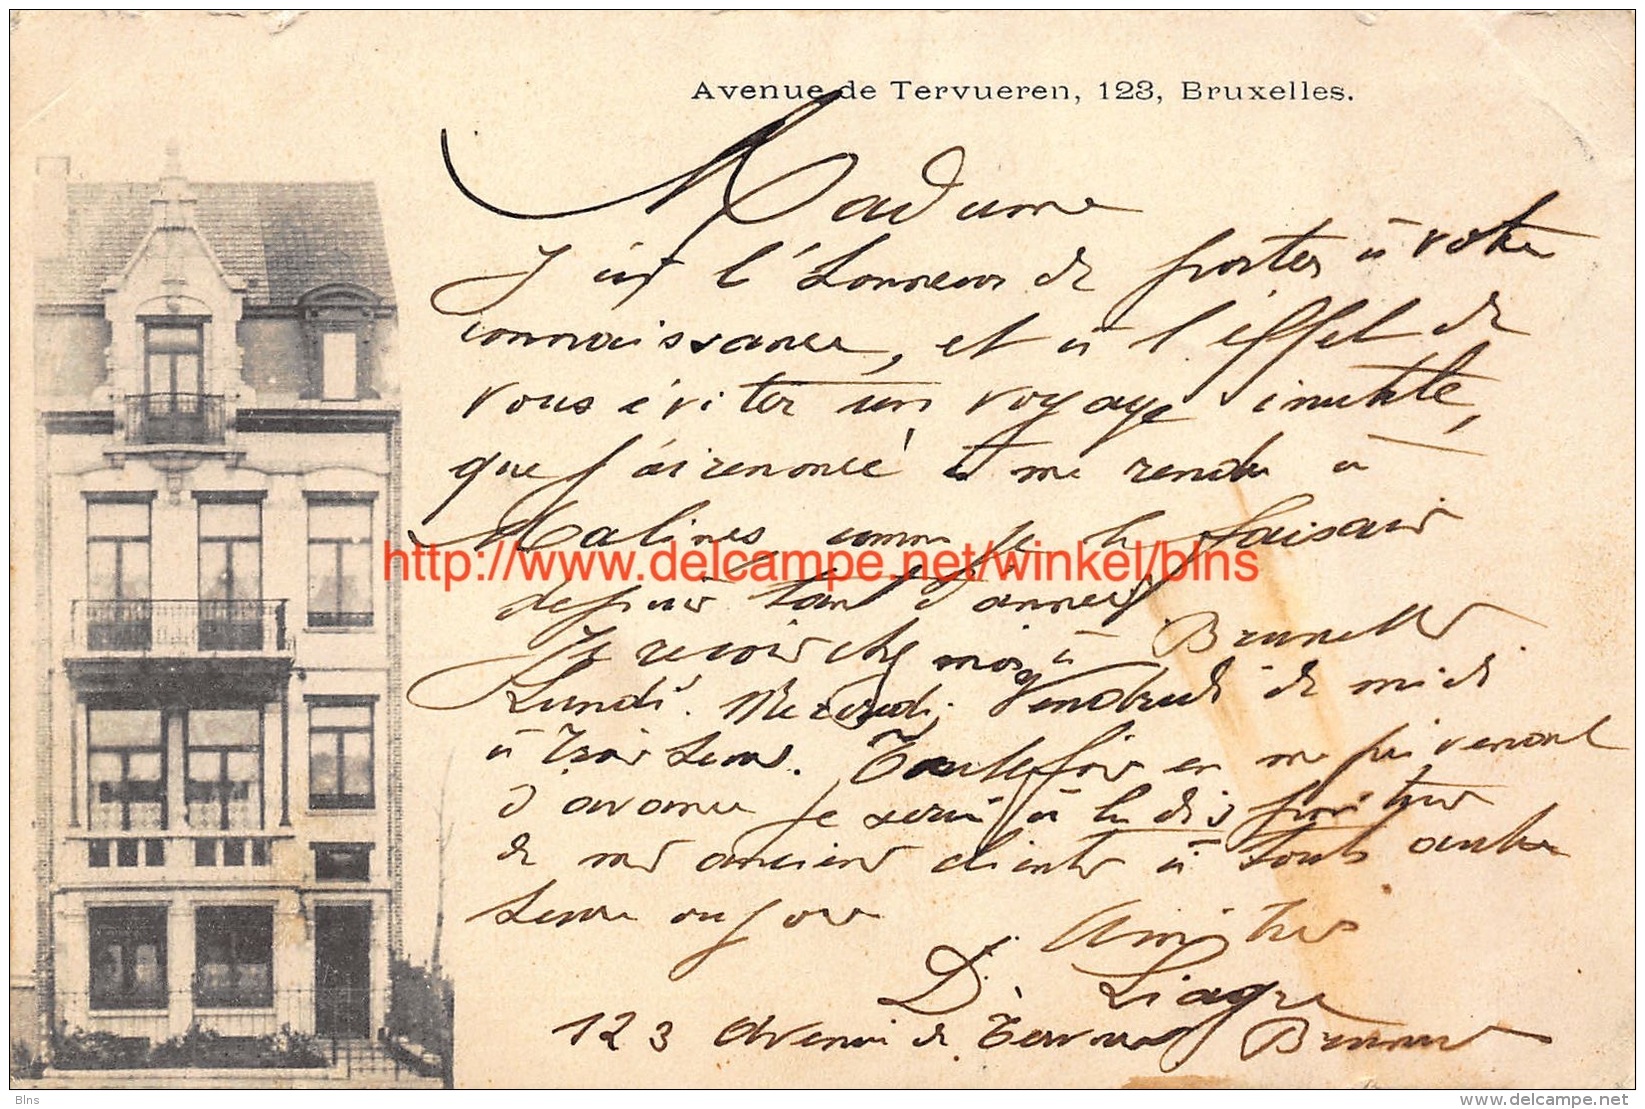 Avenue de Tervueren, 123, Bruxelles.
Madame
J'ai l'honneur de porter à votre
connaissance, et à l'effet de
vous éviter un voyage inutile,
que j'ai renoncé à me rendre à
Malines comme je le faisais
http://www.delcampe.net/winkel/blns
depuis tant d'années
Je reçois chez moi à Bruxelles
Lundi. Mercredi. Vendredi de midi
à trois heures. Toutefois en me prévenant
d'avance je serai à la disposition
de mes anciens clients à toute autre
heure ou jour
Dr Liagre
123 Avenue de Tervueren Bruxelles
Blns
www.delcampe.net